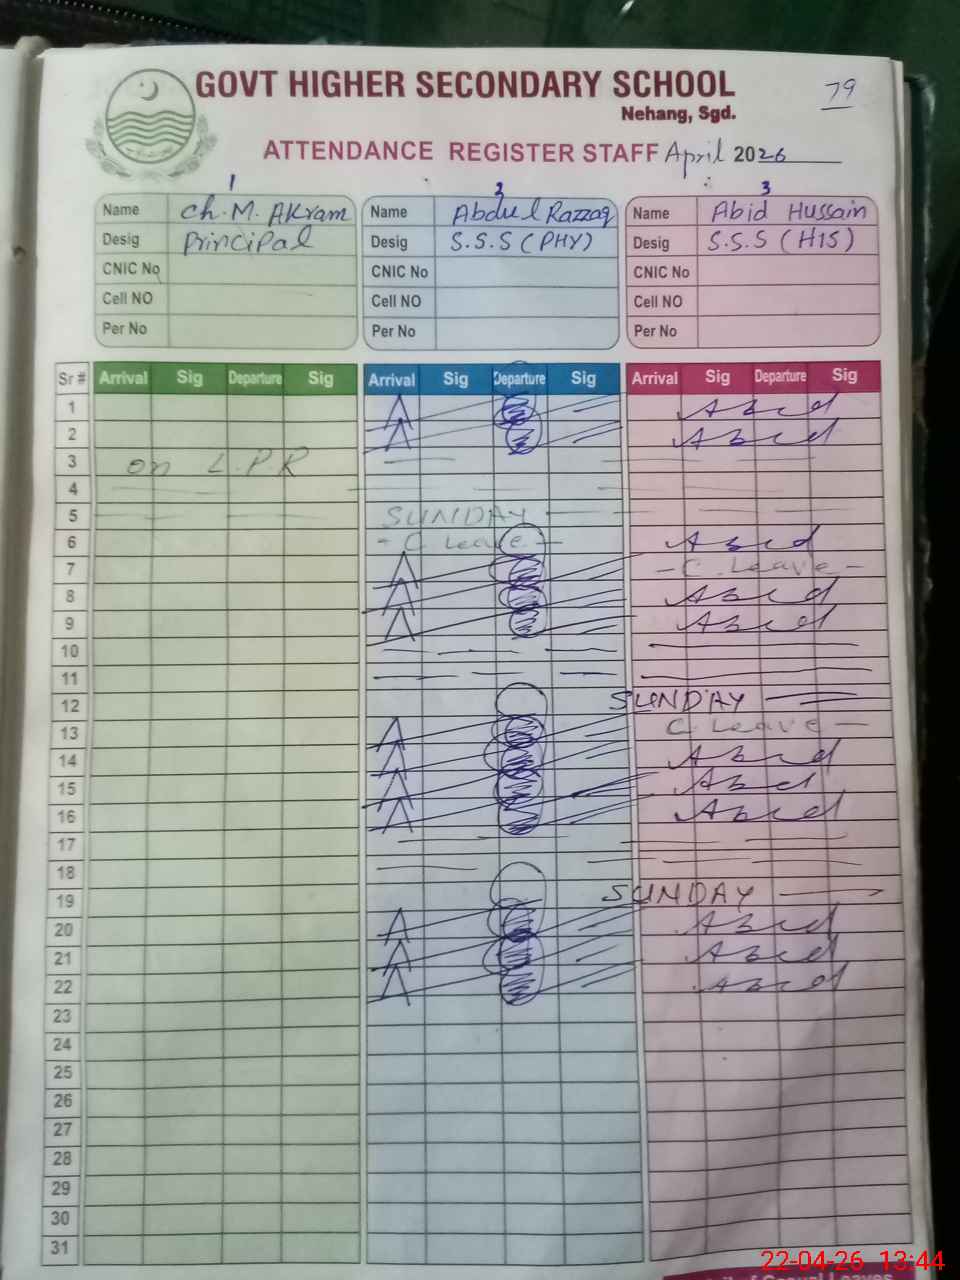 GOVT HIGHER SECONDARY SCHOOL
79
Nehang, Sgd.
ATTENDANCE REGISTER STAFF April 2026
1 2 3
Name Ch. M. AKram Name Abdul Razzaq Name Abid Hussain
Desig Principal Desig S.S.S (PHY) Desig S.S.S (HIS)
CNIC No CNIC No CNIC No
Cell NO Cell NO Cell NO
Per No Per No Per No
Sr # Arrival Sig Departure Sig Arrival Sig Departure Sig Arrival Sig Departure Sig
1 A Abid
2 A Abid
3 on L.P.R
4
5 SUNDAY
6 - C. Leave - Abid
7 A - C. Leave -
8 A Abid
9 A Abid
10
11
12 SUNDAY
13 A C. Leave -
14 A Abid
15 A Abid
16 A Abid
17
18
19 SUNDAY
20 A Abid
21 A Abid
22 A Abid
23
24
25
26
27
28
29
30
31
22-04-26 13:44